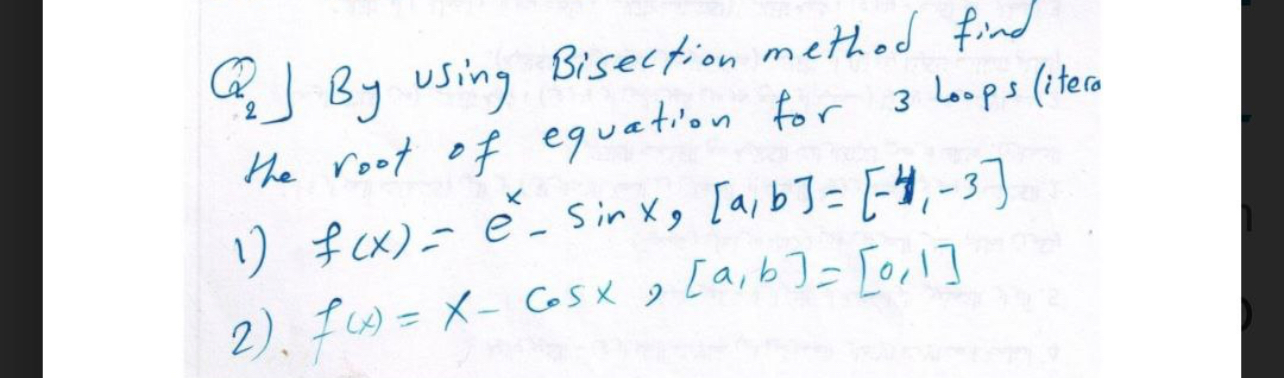 Q2] By using Bisection method find
the root of equation for 3 Loops (itera
1) f(x) = eˣ - sin x, [a,b] = [-4,-3]
2). f(x) = x - cos x, [a,b] = [0,1]